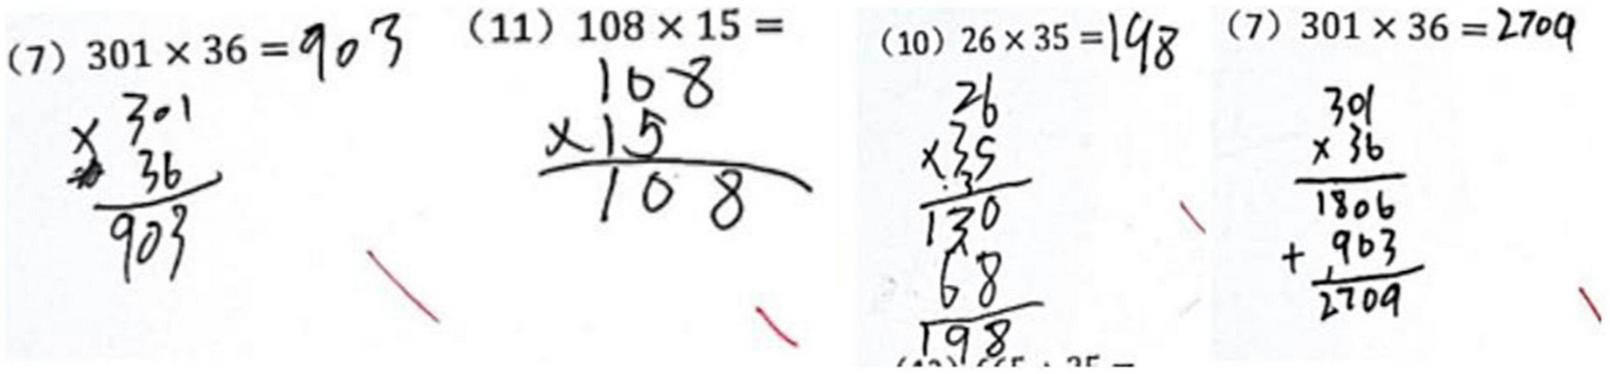 (7) 301 × 36 = 903
301
× 36
903
(11) 108 × 15 =
108
×15
108
(10) 26 × 35 = 198
26
×35
130
68
198
(7) 301 × 36 = 2709
301
× 36
1806
+ 903
2709